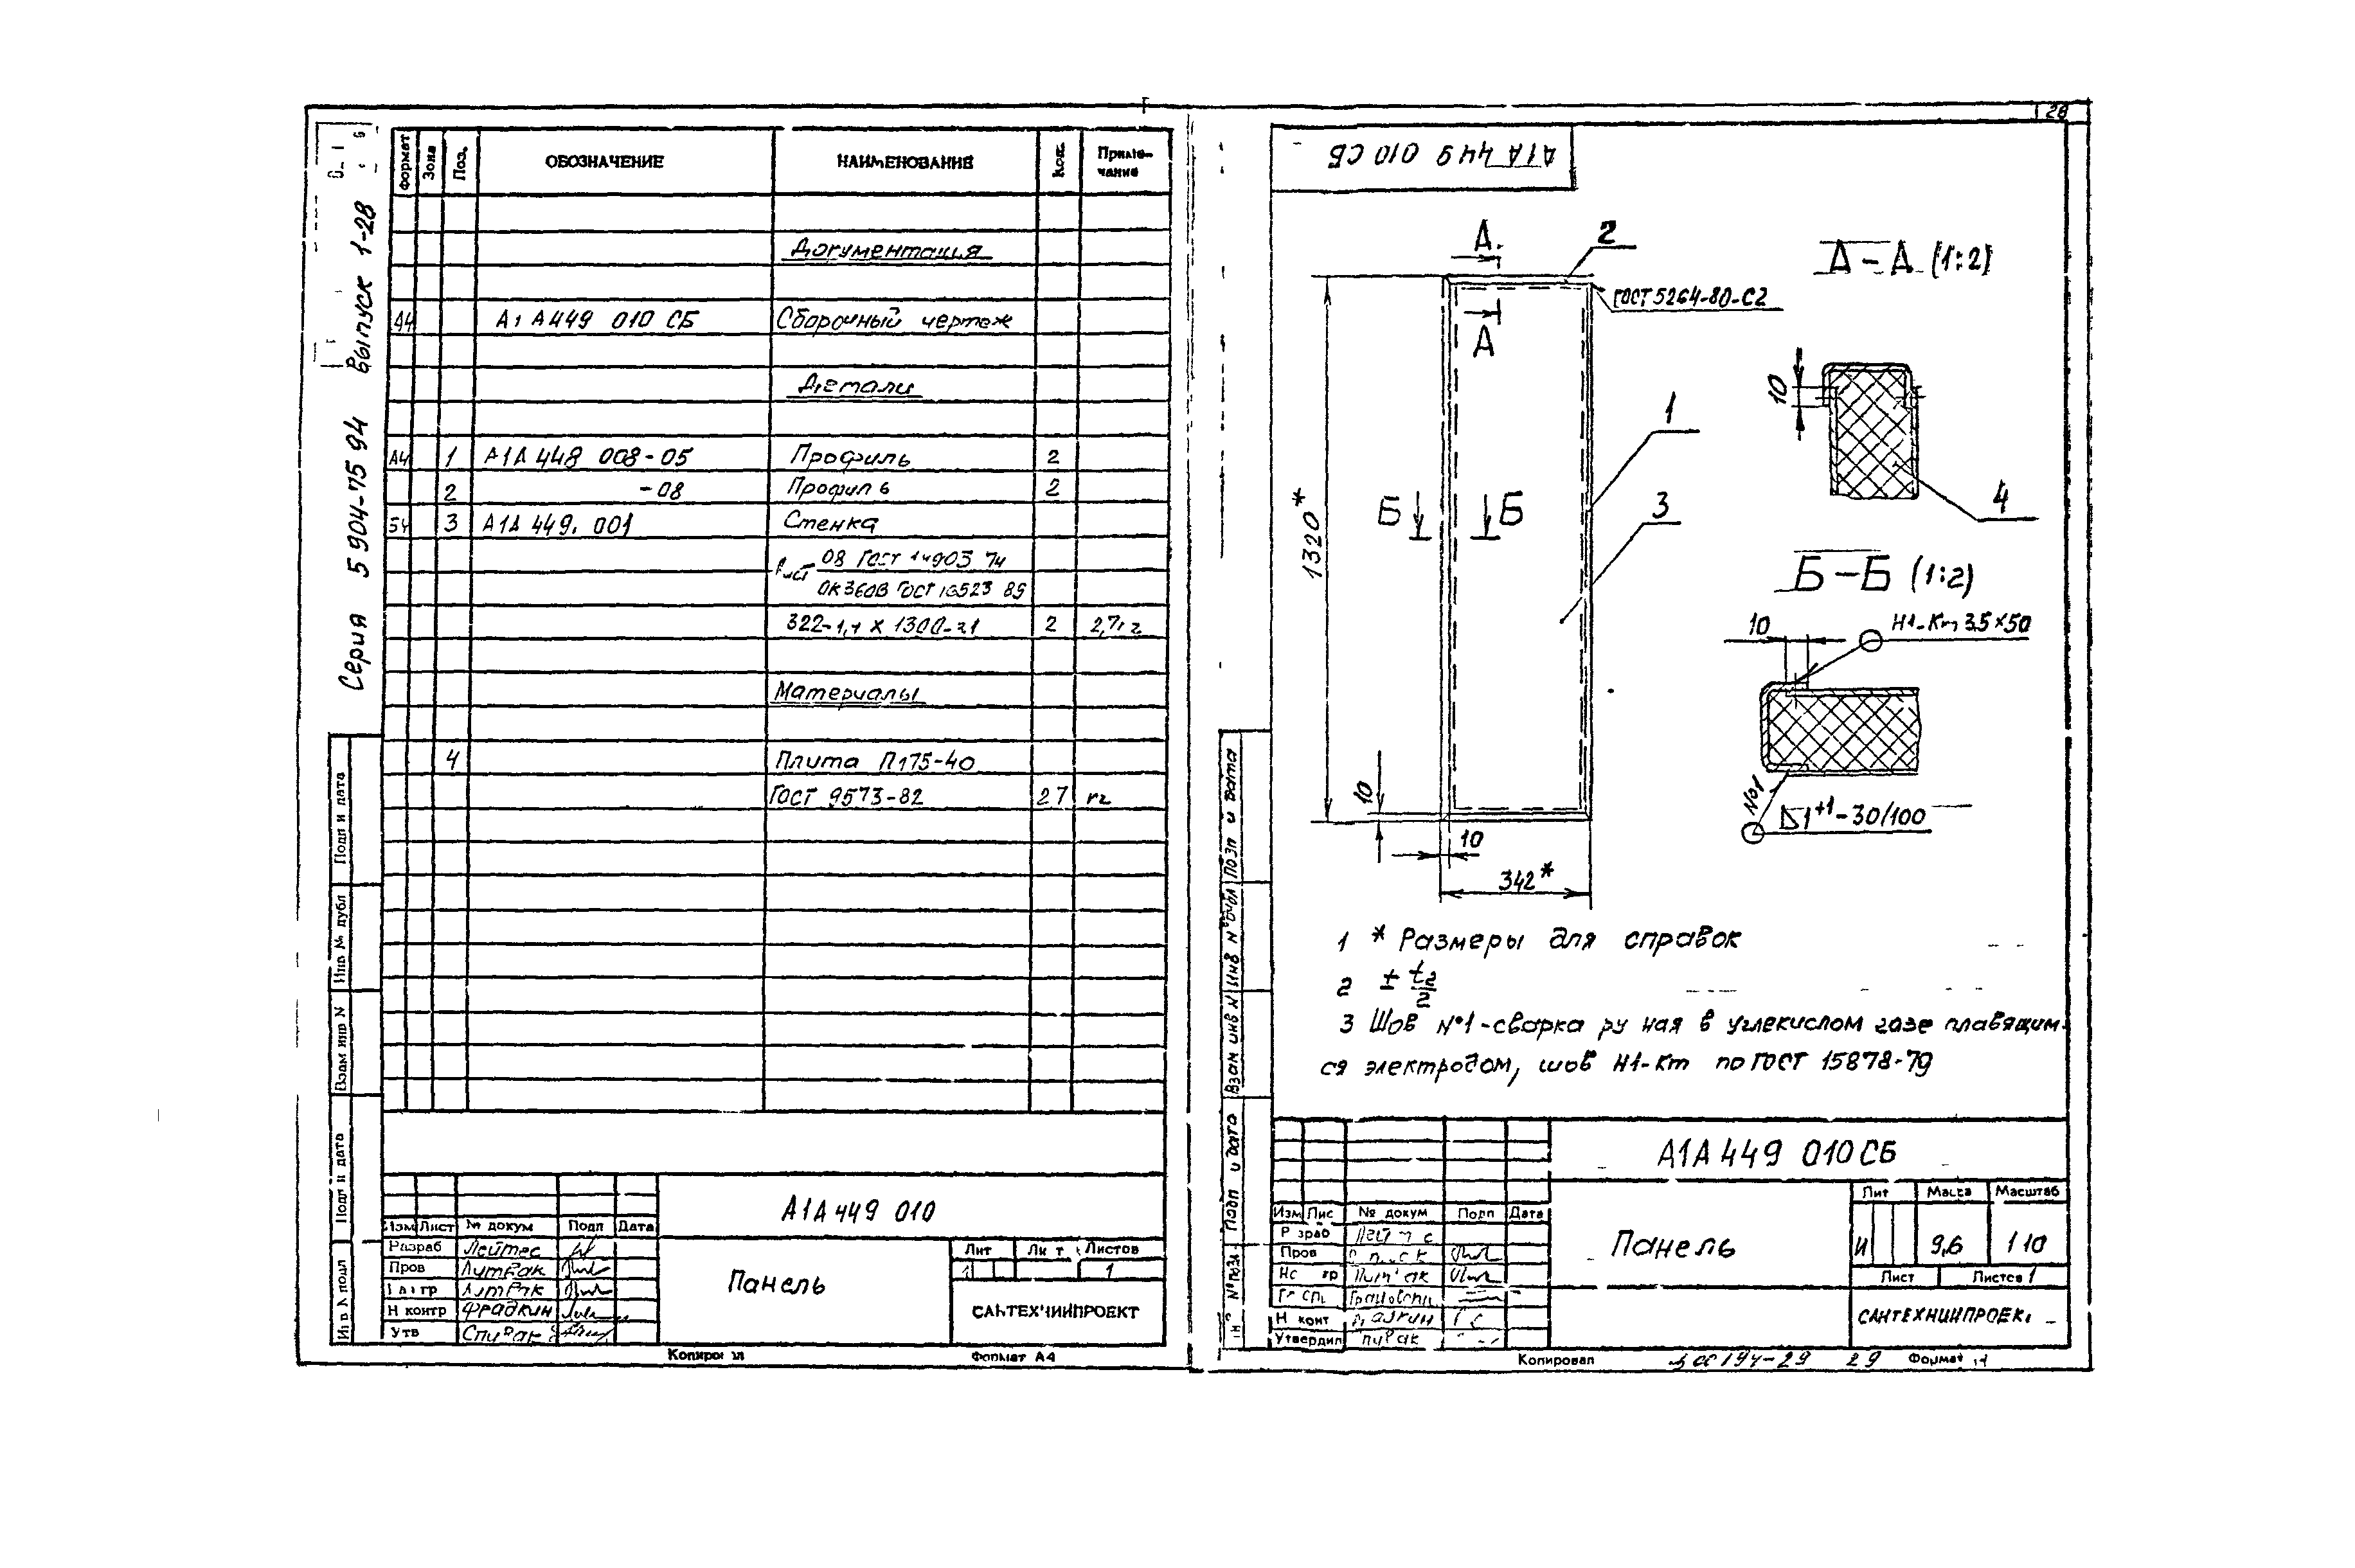 Серия 5 904-75 94 Выпуск 1-28
Формат Зона Поз. ОБОЗНАЧЕНИЕ НАИМЕНОВАНИЕ Кол. Примечание
Документация
А4 А1А449 010 СБ Сборочный чертеж
Детали
А4 1 А1А 448 008-05 Профиль 2
2 -08 Профиль 2
3 А1А 449. 001 Стенка
Лист 08 ГОСТ 19903 74
ОК360В ГОСТ 16523 89
322-1,4 х 1300-2,1 2 2,7кг
Материалы
4 Плита П175-40
ГОСТ 9573-82 2 7 кг
Подп и дата
Инв № дубл
Взам инв N
Подп и дата
А1А 449 010
Изм Лист № докум Подп Дата
Разраб Лейтес
Пров Литвак
Литвак
Н контр Фрадкин
Утв Спивак
Панель
Лит Листов
1
САНТЕХНИИПРОЕКТ
Формат А4
28
А1А 449 010 СБ
А
2
ГОСТ 5264-80-С2
А
1
Б Б
3
1320*
10
10
342*
А-А (1:2)
10
4
Б-Б (1:2)
10
Н1-Кт 3.5×50
№1
1+1-30/100
1 * Размеры для справок
2 ± t2/2
3 Шов №1-сварка ру ная в углекислом газе плавящим-
ся электродом, шов Н1-Кт по ГОСТ 15878-79
Подп и дата
Взам инв N
Подп и дата
А1А 449 010СБ
Изм Лис № докум Подп Дата
Пров
Н конт
Утвердил
Панель
Лит Масса Масштаб
И 9,6 1 10
Лист Листов 1
САНТЕХНИИПРОЕК
Копировал 29 Формат